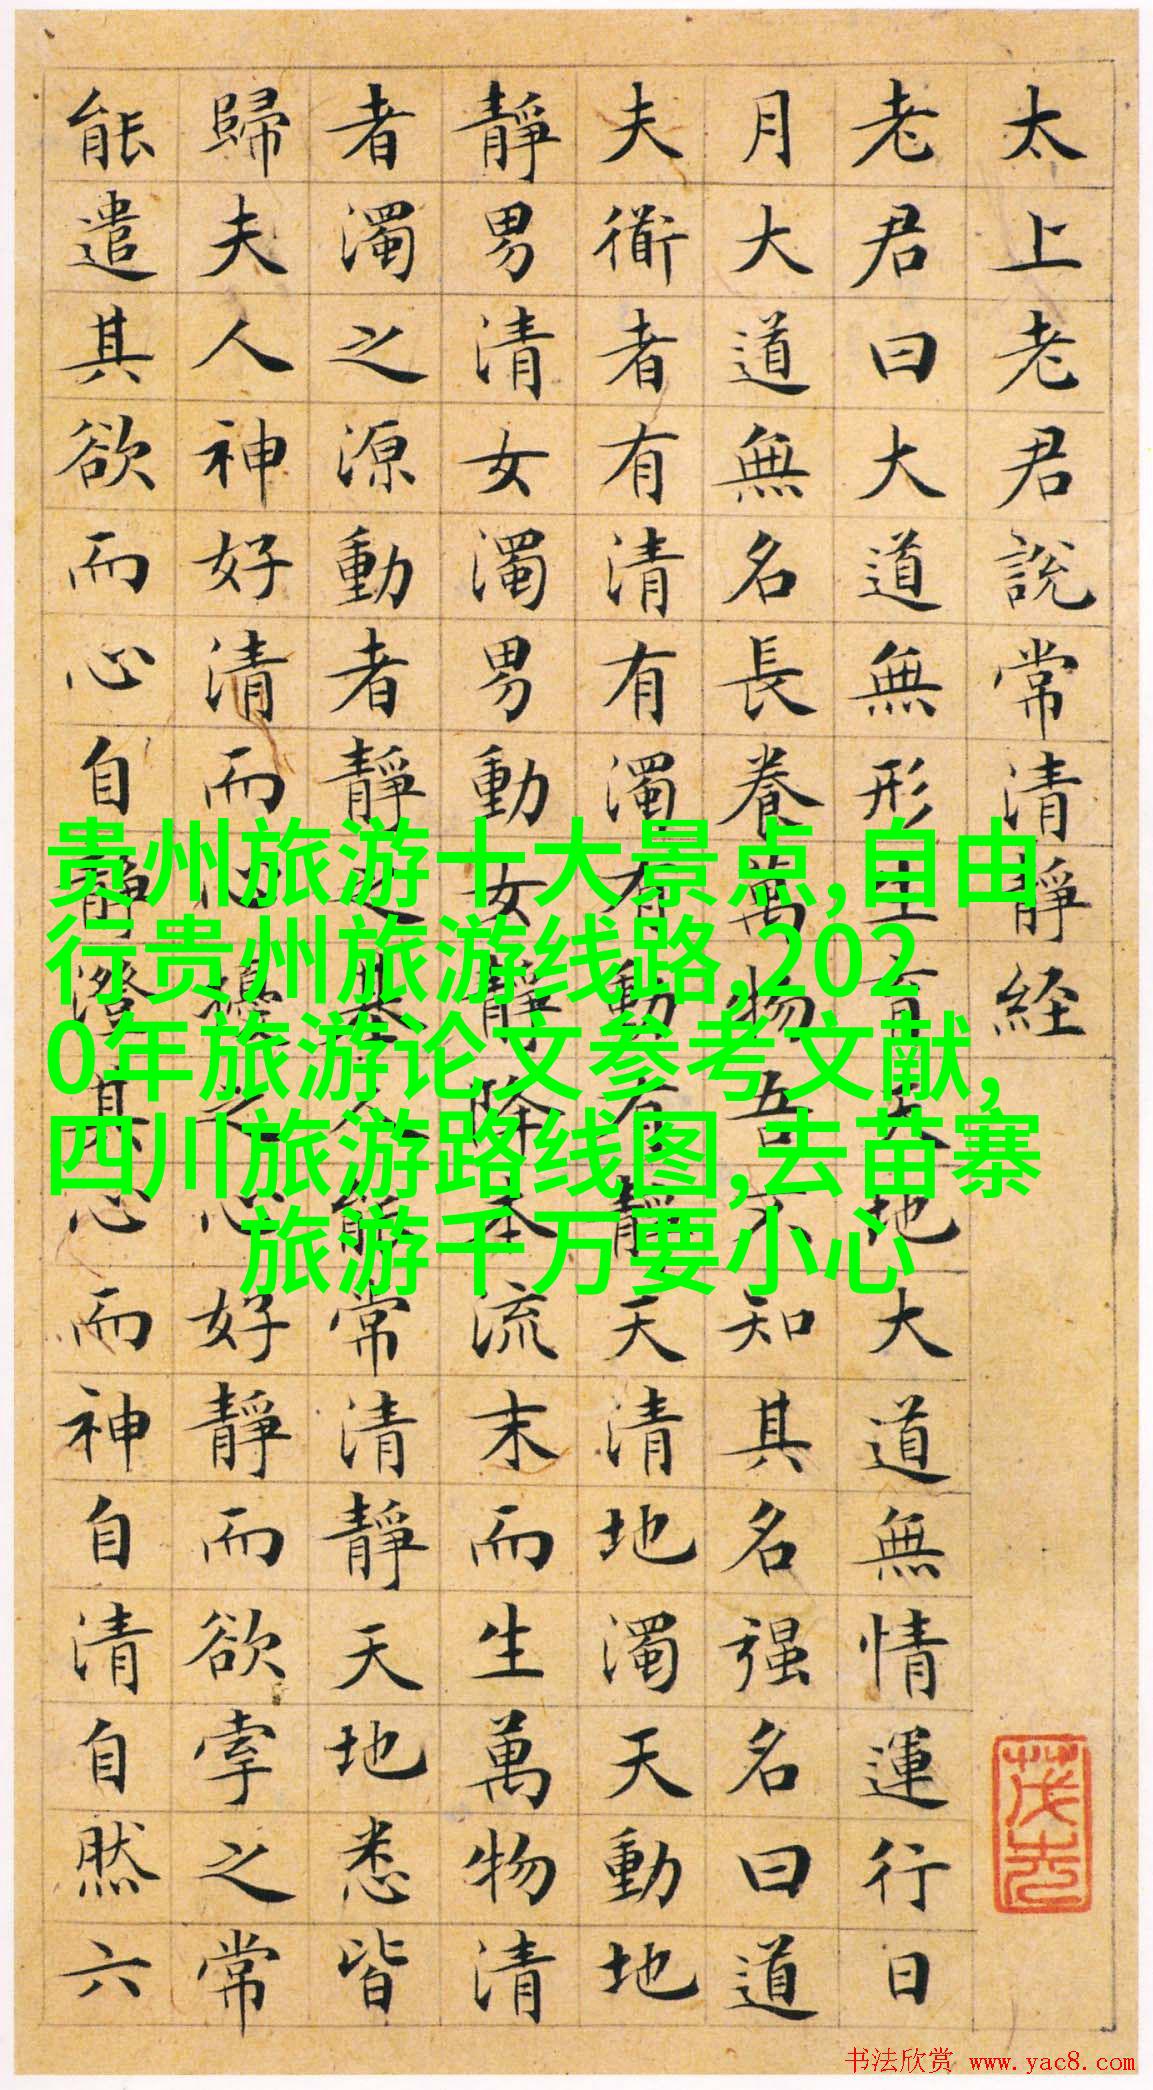 太上老君說常清靜経
老君曰大道無形生育天地大道無情運行日
月大道無名長養萬物吾不知其名强名曰道
夫衜者有清有濁有動有靜天清地濁天動地
靜男清女濁男動女靜降本流末而生萬物清
者濁之源動者靜之基人能常清靜天地悉皆
歸夫人神好清而心擾之心好靜而欲牽之常
能遣其欲而心自靜澄其心而神自清自然六
贵州旅游十大景点,自由
行贵州旅游线路,202
0年旅游论文参考文献,
四川旅游路线图,去苗寨
旅游千万要小心
书法欣赏 www.yac8.com